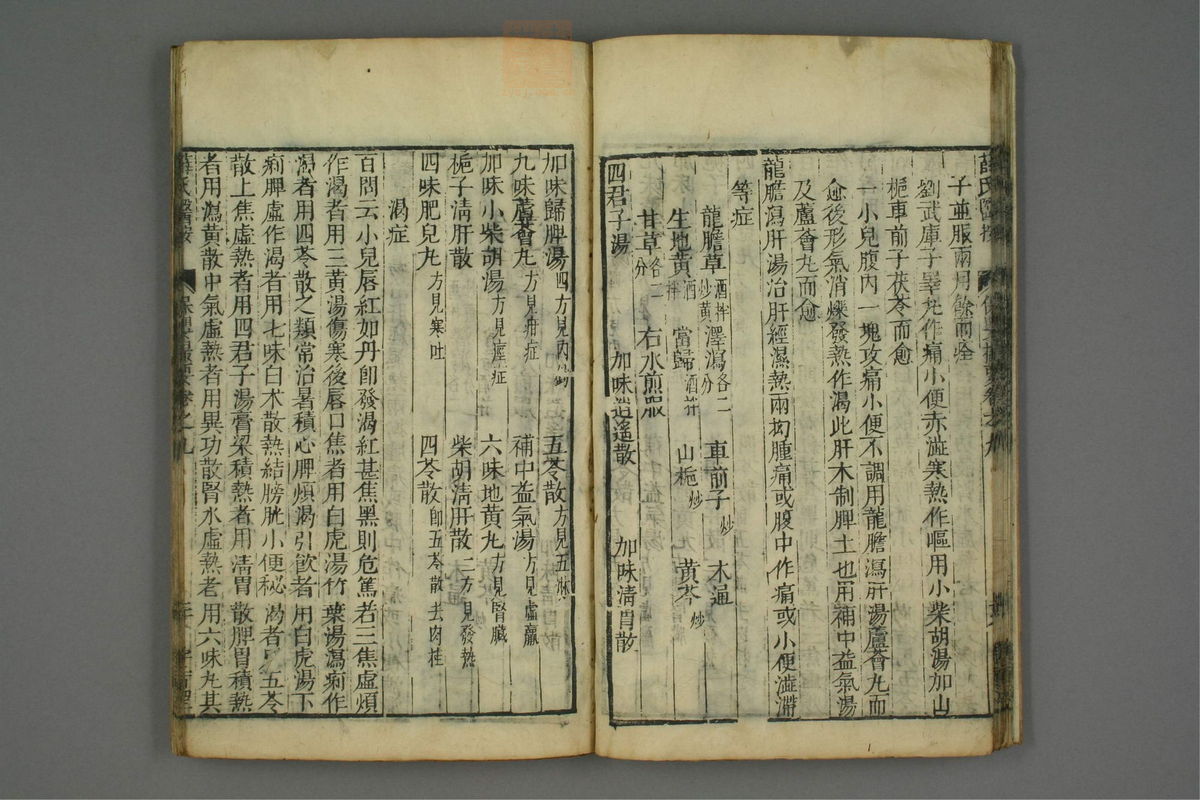 子並服兩月餘而痊
劉武庫子睪丸作痛小便赤澁寒熱作嘔用小柴胡湯加山
梔車前子茯苓而愈
一小兒腹內一塊攻痛小便不調用龍膽瀉肝湯蘆薈丸而
愈後形氣消爍發熱作渴此肝木制脾土也用補中益氣湯
及蘆薈丸而愈
龍膽瀉肝湯治肝經濕熱兩拘腫痛或腹中作痛或小便澁滯
等症
龍膽草酒拌炒黃 澤瀉各二分 車前子炒 木通
生地黃酒拌 當歸酒拌 山梔炒 黃芩炒
甘草各二分 右水煎服
四君子湯 加味逍遙散 加味清胃散
加味歸脾湯四方見內釣 五苓散方見五淋
九味蘆薈丸方見疳症 補中益氣湯方見虛羸
加味小柴胡湯方見痙症 六味地黃丸方見腎臟
梔子清肝散 柴胡清肝散二方見發熱
四味肥兒丸方見寒吐 四苓散即五苓散去肉桂
渴症
百問云小兒唇紅如丹即發渴紅甚焦黑則危篤若三焦虛煩
作渴者用三黃湯傷寒後唇口焦者用白虎湯竹葉湯瀉痢作
渴者用四苓散之類常治暑積心脾煩渴引飲者用白虎湯下
痢脾虛作渴者用七味白朮散熱結膀胱小便秘渴者五苓
散上焦虛熱者用四君子湯膏梁積熱者用清胃散脾胃積熱
者用瀉黃散中氣虛熱者用異功散腎水虛熱者用六味丸其
薛氏醫按 保嬰撮要卷之九